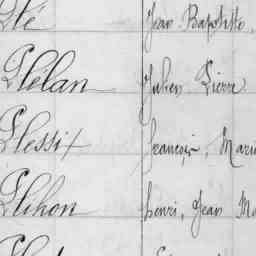 Jean Baptiste,
Plelan Julien Pierre
Plessix François, Marie
Plihon henri, Jean Ma